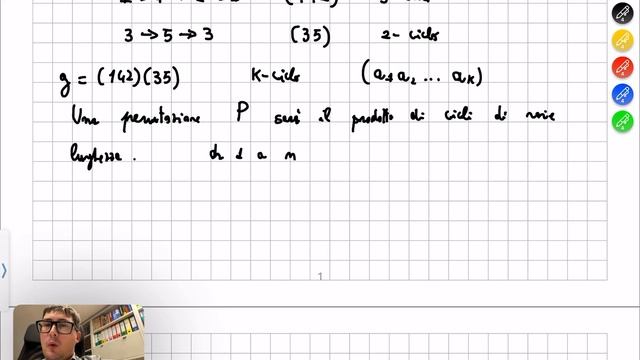 3 → 5 → 3 (35) 2-ciclo
g = (142)(35) k-ciclo (a₁ a₂ ... aₖ)
Una permutazione P sarà il prodotto di cicli di varie
lunghezze. da 1 a n
1